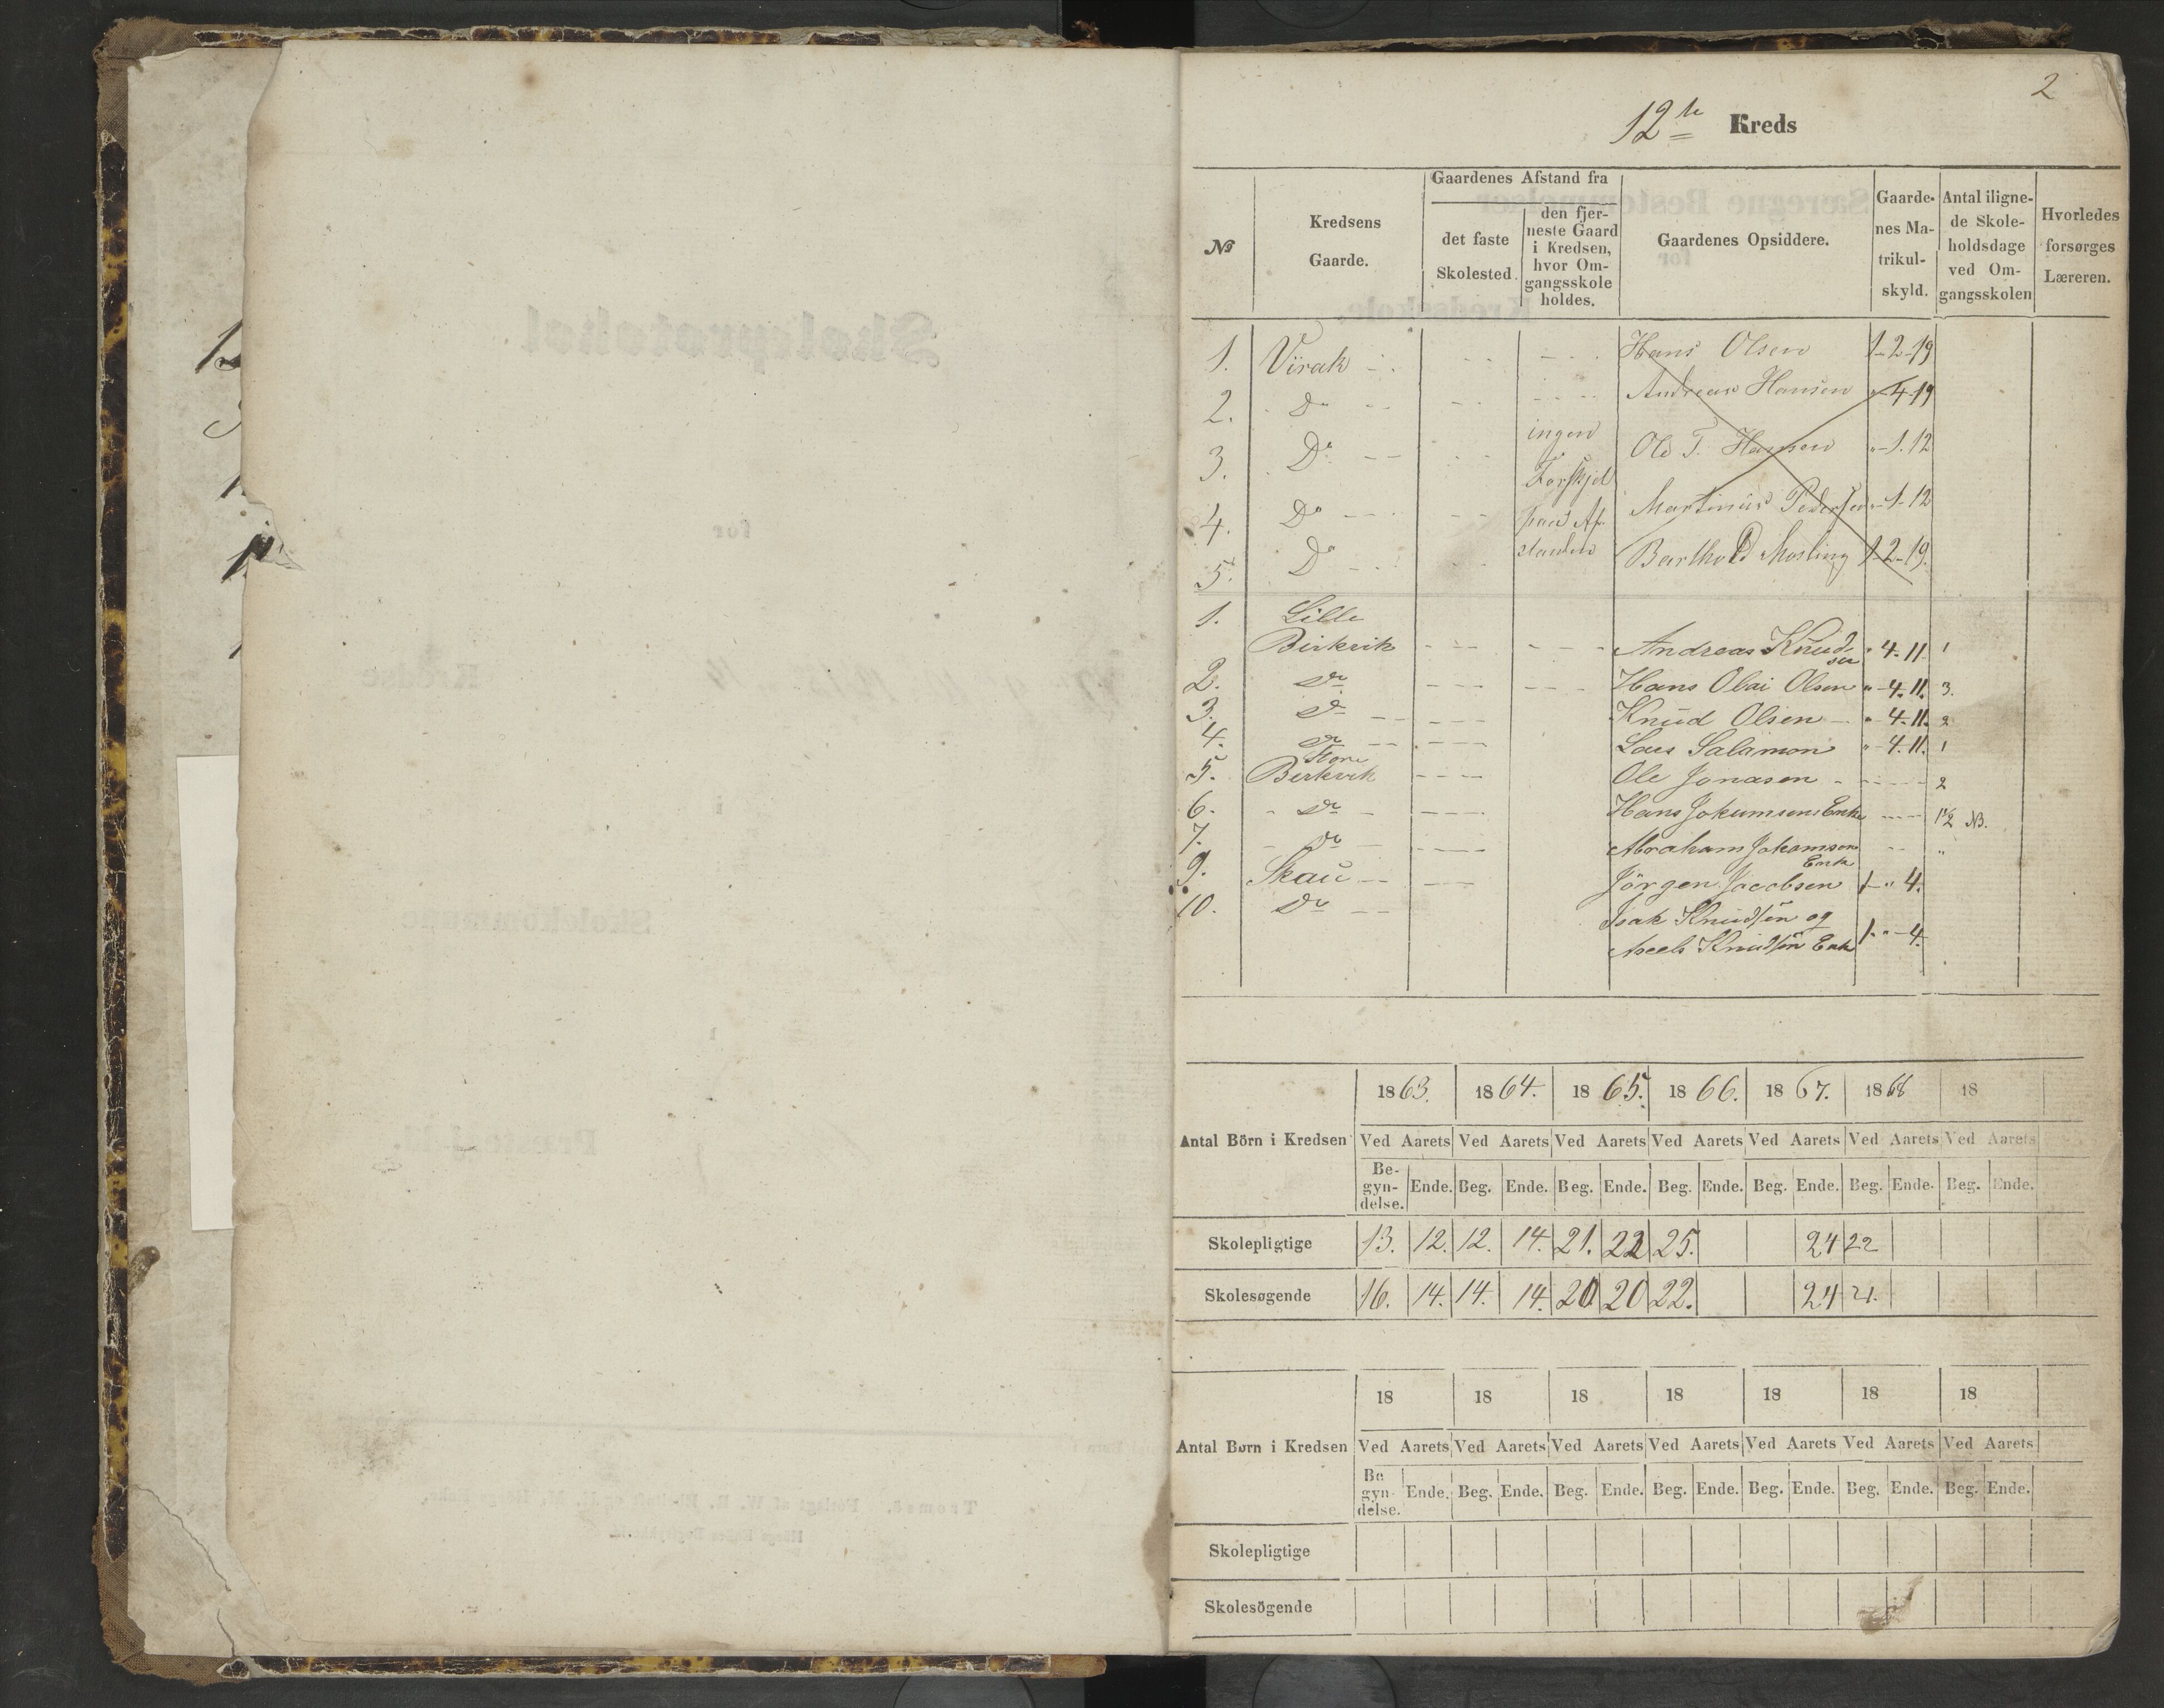 2
12te Kreds
Gaardenes Afstand fra
№ Kredsens Gaarde. det faste Skolested. den fjerneste Gaard i Kredsen, hvor Omgangsskole holdes. Gaardenes Opsiddere. Gaardenes Matrikulskyld. Antal ilignede Skoleholdsdage ved Omgangsskolen Hvorledes forsørges Læreren.
1. Virak - . - - - - - Hans Olsen 1-2-19
2. Do - - - - - - - Andreas Hansen "-4-19
3. Do - - - - ingen Ole T. Hansen "-1.12
Forskjel
4. Do - - - - paa Af- Martinus Pedersen "-1-12
5. Do - - - - standen Barthold Mosling 1-2-19.
1. Lille
Birkvik - - - - - - Andreas Knudsen " 4-11- 1
2. Do - - - - - - Hans Olai Olsen "-4.11. 3.
3. Do - - - - - Knud Olsen - "-4-11. 2
4. Do - - - - - Lars Salamon "-4.11. 1
5. Store Berkvik - - - - Ole Jonasen - - - - - 2
6. - Do - - - - - Hans Jokumsens Enke - - - 1 1/2 NB.
7. - Do - - - - - Abraham Jokamson Enke - - "
9. Skau - - - - - Jörgen Jacobsen 1-" 4.
10. Do - - Isak Knudsen og
Knudsen Enk 1-"-4.
1863. 1864. 1865. 1866. 1867. 1868 18
Antal Börn i Kredsen Ved Aarets Ved Aarets Ved Aarets Ved Aarets Ved Aarets Ved Aarets Ved Aarets
Begyndelse. Ende. Beg. Ende. Beg. Ende. Beg. Ende. Beg. Ende. Beg. Ende. Beg. Ende.
Skolepligtige 13. 12. 12. 14. 21. 22 25. 24 22
Skolesøgende 16. 14. 14. 14. 20 20 22. 24 21.
18 18 18 18 18 18 18
Antal Børn i Kredsen Ved Aarets Ved Aarets Ved Aarets Ved Aarets Ved Aarets Ved Aarets Ved Aarets
Be gyn- delse. Ende. Beg. Ende. Beg. Ende. Beg. Ende. Beg. Ende. Beg. Ende. Beg. Ende.
Skolepligtige
Skolesögende